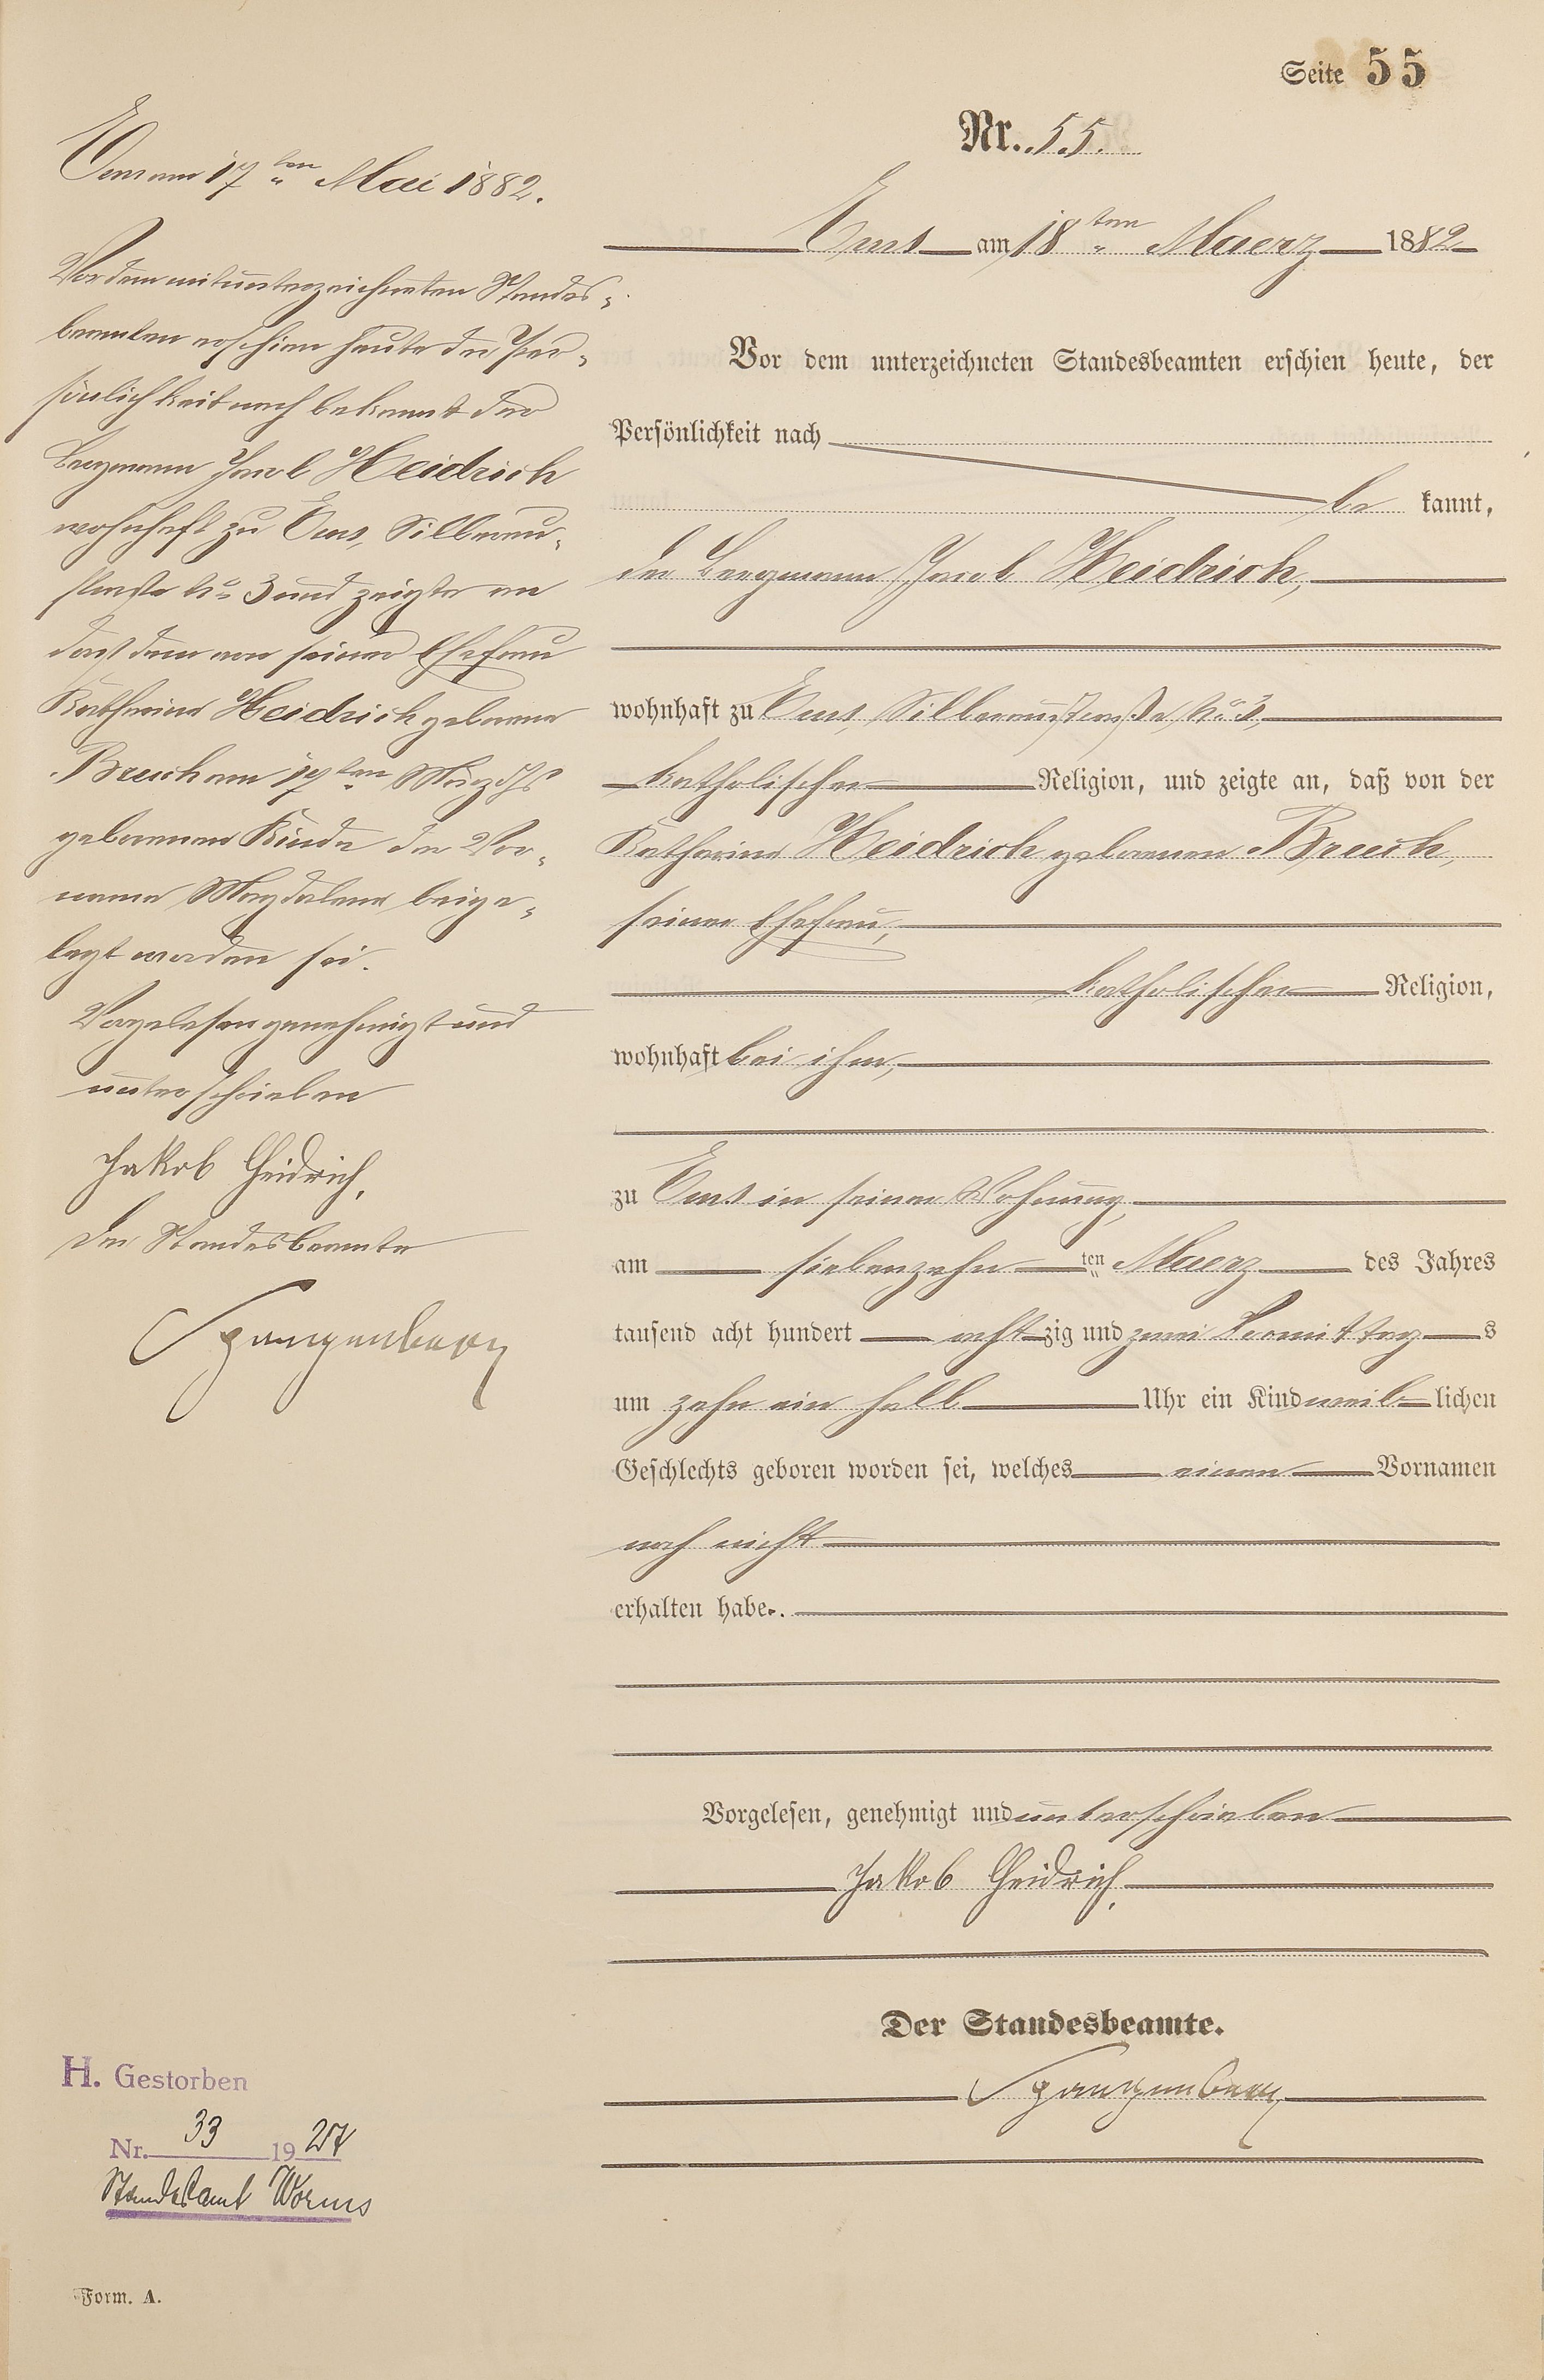 Seite 55
Nr. 55.
Ems am 18ten Maerz 1882
Vor dem unterzeichneten Standesbeamten erschien heute, der
Persönlichkeit nach
be kannt,
der Bergmann Jacob Heidrich,
wohnhaft zu Ems, Silberaustraße No 3,
katholischer Religion, und zeigte an, daß von der
Katharina Heidrich geborenen Breuch,
seiner Ehefrau,
katholischer Religion,
wohnhaft bei ihm,
zu Ems in seiner Wohnung,
am siebenzehn ten Maerz des Jahres
tausend acht hundert acht zig und zwei Vormittag s
um zehn ein halb Uhr ein Kind weib lichen
Geschlechts geboren worden sei, welches einen Vornamen
noch nicht
erhalten habe.
Vorgelesen, genehmigt und unterschrieben
Jakob Heidrich,
Der Standesbeamte.
Spangenberg
Ems am 17ten Mai 1882.
Vor dem mitunterzeichneten Standes-
beamten erschien heute der Per-
sönlichkeit nach bekannt der
Bergmann Jacob Heidrich
wohnhaft zu Ems, Silberau-
straße No 3 und zeigte an
daß dem von seiner Ehefrau
Katharina Heidrich geborene
Breuch am 17ten März d Js
geborenen Kinde der Vor-
name Magdalena beige-
legt worden sei.
Vorgelesen genehmigt und
unterschrieben
Jakob Heidrich,
Der Standesbeamte
Spangenberg
H. Gestorben
Nr. 33 19
Standesamt Worms
Form. A.